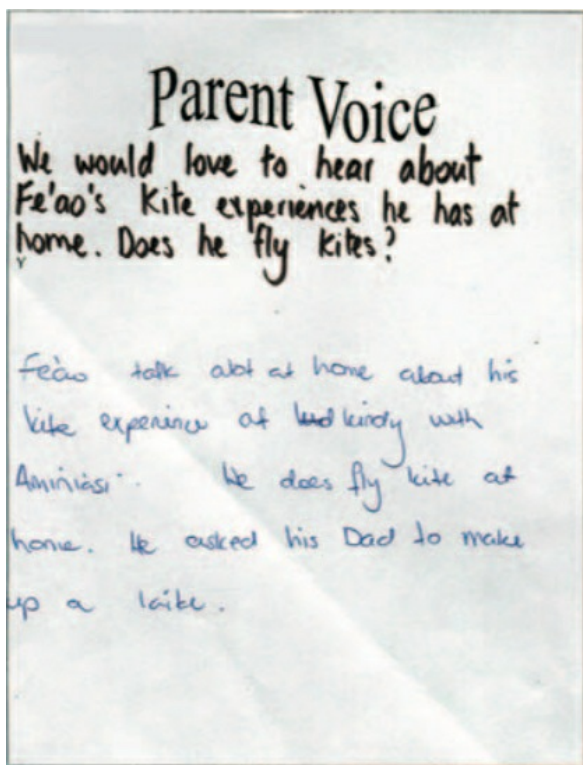 Parent Voice
We would love to hear about
Fe'ao's Kite experiences he has at
home. Does he fly kites?
Fe'ao talk alot at home about his
kite experience at kindy with
Aminiasi. He does fly kite at
home. He asked his Dad to make
up a kite.